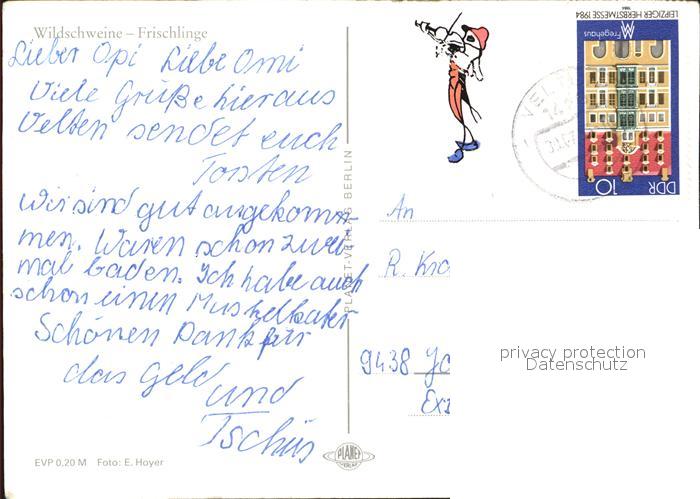 Wildschweine – Frischlinge
Lieber Opi Liebe Omi
Viele Grüße hieraus
Velten sendet euch
Torsten
Wir sind gut angekom-
men. Waren schon zwei
mal baden. Ich habe auch
schon einen Muskelkater
Schönen Dank für
das Geld
und
Tschüs
EVP 0,20 M Foto: E. Hoyer
PLANET-VERLAG BERLIN
PLANET
VERLAG
LEIPZIGER HERBSTMESSE 1984
Fregehaus
DDR 10
An
R.
9438
privacy protection
Datenschutz